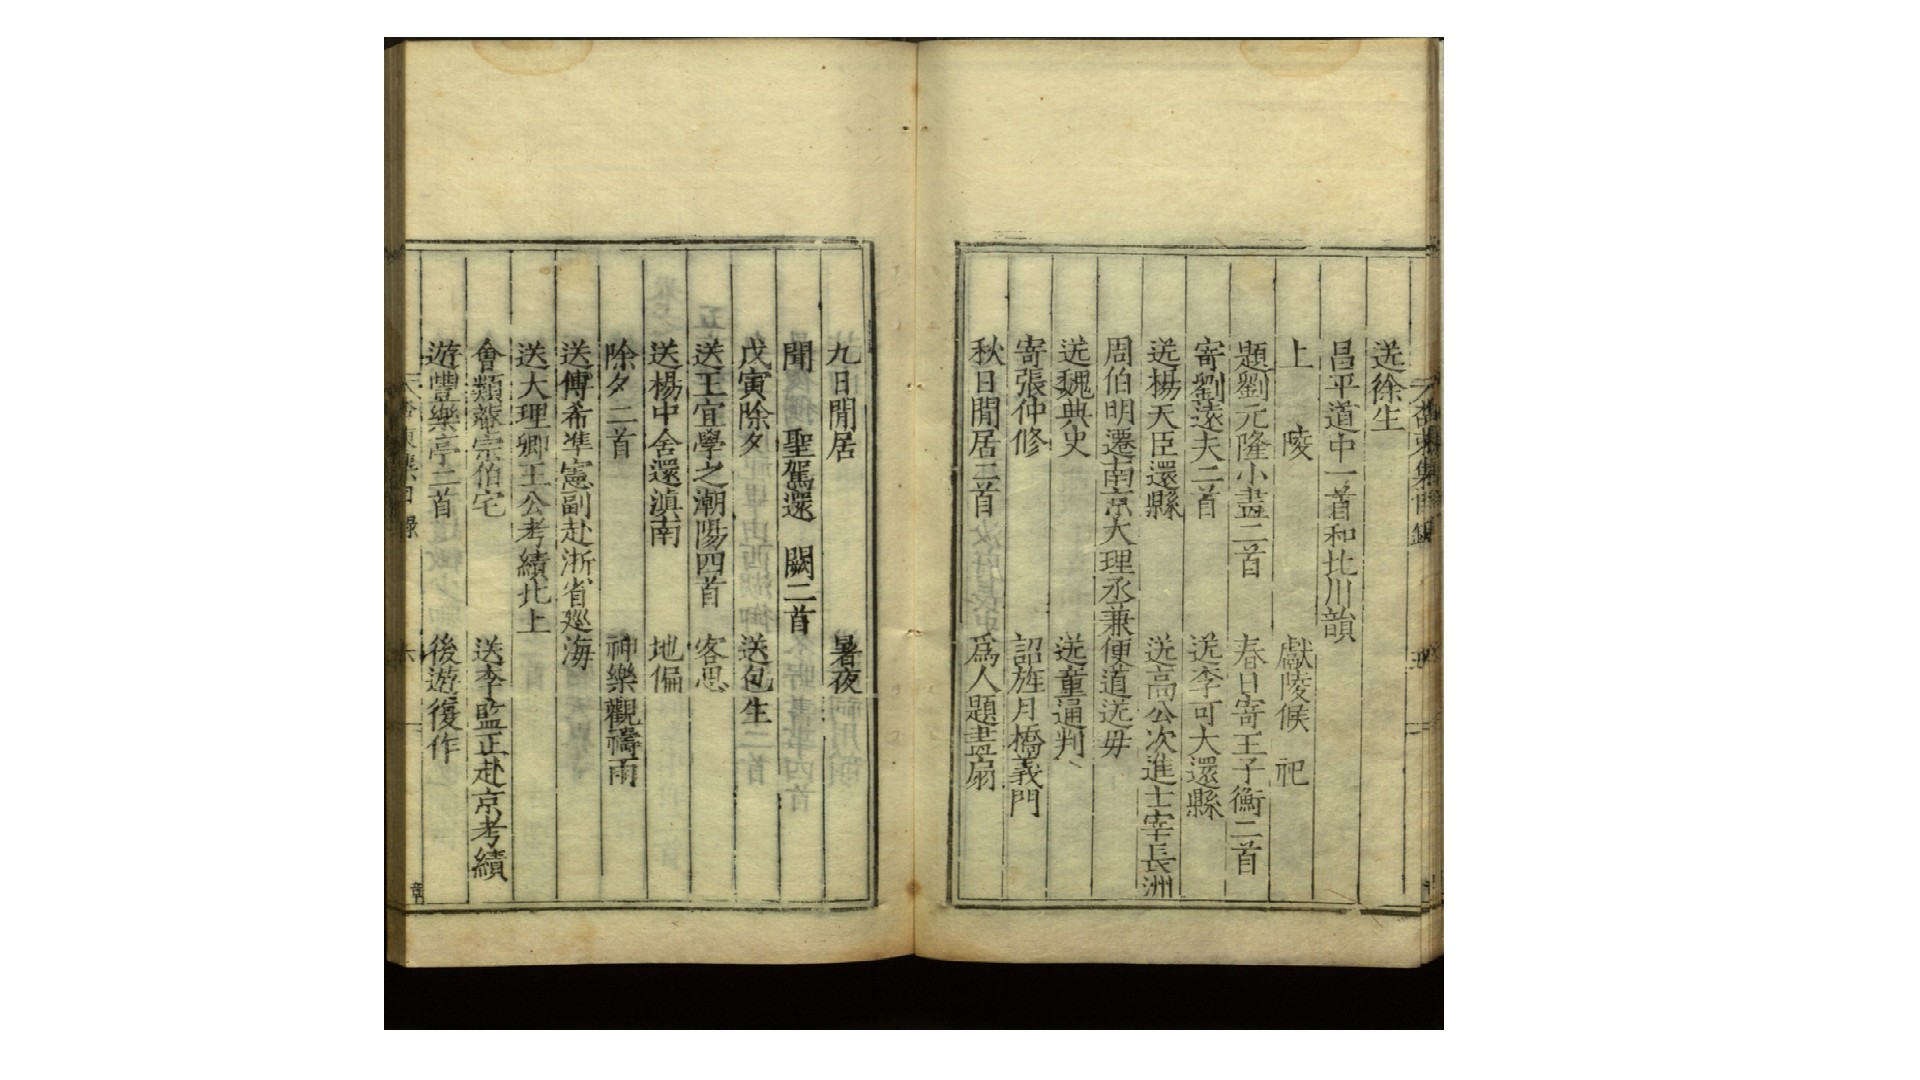 送徐生
昌平道中一首和北川韻
上　陵　獻陵候　祀
題劉元隆小畫二首　春日寄王子衡二首
寄劉遠夫二首　送李可大還縣
送楊天臣還縣　送高公次進士宰長洲
周伯明遷南京大理丞兼便道送毋
送魏典史　送童通判
寄張仲修　詔旌月橋義門
秋日閒居三首　爲人題畫扇
九日閒居　暑夜
聞　聖駕還　闕二首
戊寅除夕　送包生
送王宜學之潮陽四首　客思
送楊中舍還滇南　地偏
除夕二首　神樂觀禱雨
送傅希準憲副赴浙省廵海
送大理卿王公考績北上
會類菴宗伯宅　送李監正赴京考績
遊豐樂亭二首　後遊復作